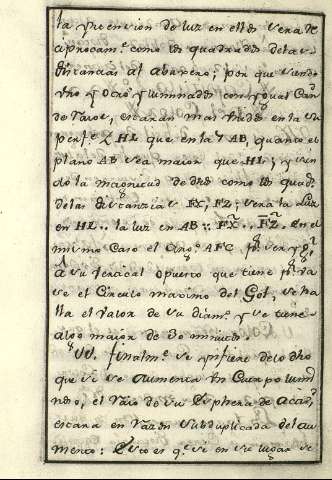 la intencion de luz en ellos sera re
ciprocam.e como los quadrados de las
distancias al abaxeno; porque siendo
uno y otro iluminados con igual Can
de raios, estaran mas unidos en la su
perf.e Z HL que en la Y AB, quanto el
plano AB sea maior que HL; y sien
do la magnitud de dhos como los quad.
de las distancias FX, FZ, sera la Luz
en HL .. la luz en AB :: FX .. FZ. en el
mismo Caso el ang.o AFC p.r ser ig.l
a su Veracal opuesto que tiene p.r ba
se el Circulo maximo del Sol, se ha
lla el valor de su diam.o y se tiene
algo maior de 30 minutos.
VI. finalm.e se infiere de lo dho
que si se aumenta un Cuerpo lumi
noso, el raio de su Esphera de
estara en razon subduplicada del au
mento: Esto es q.e si en su lugar se